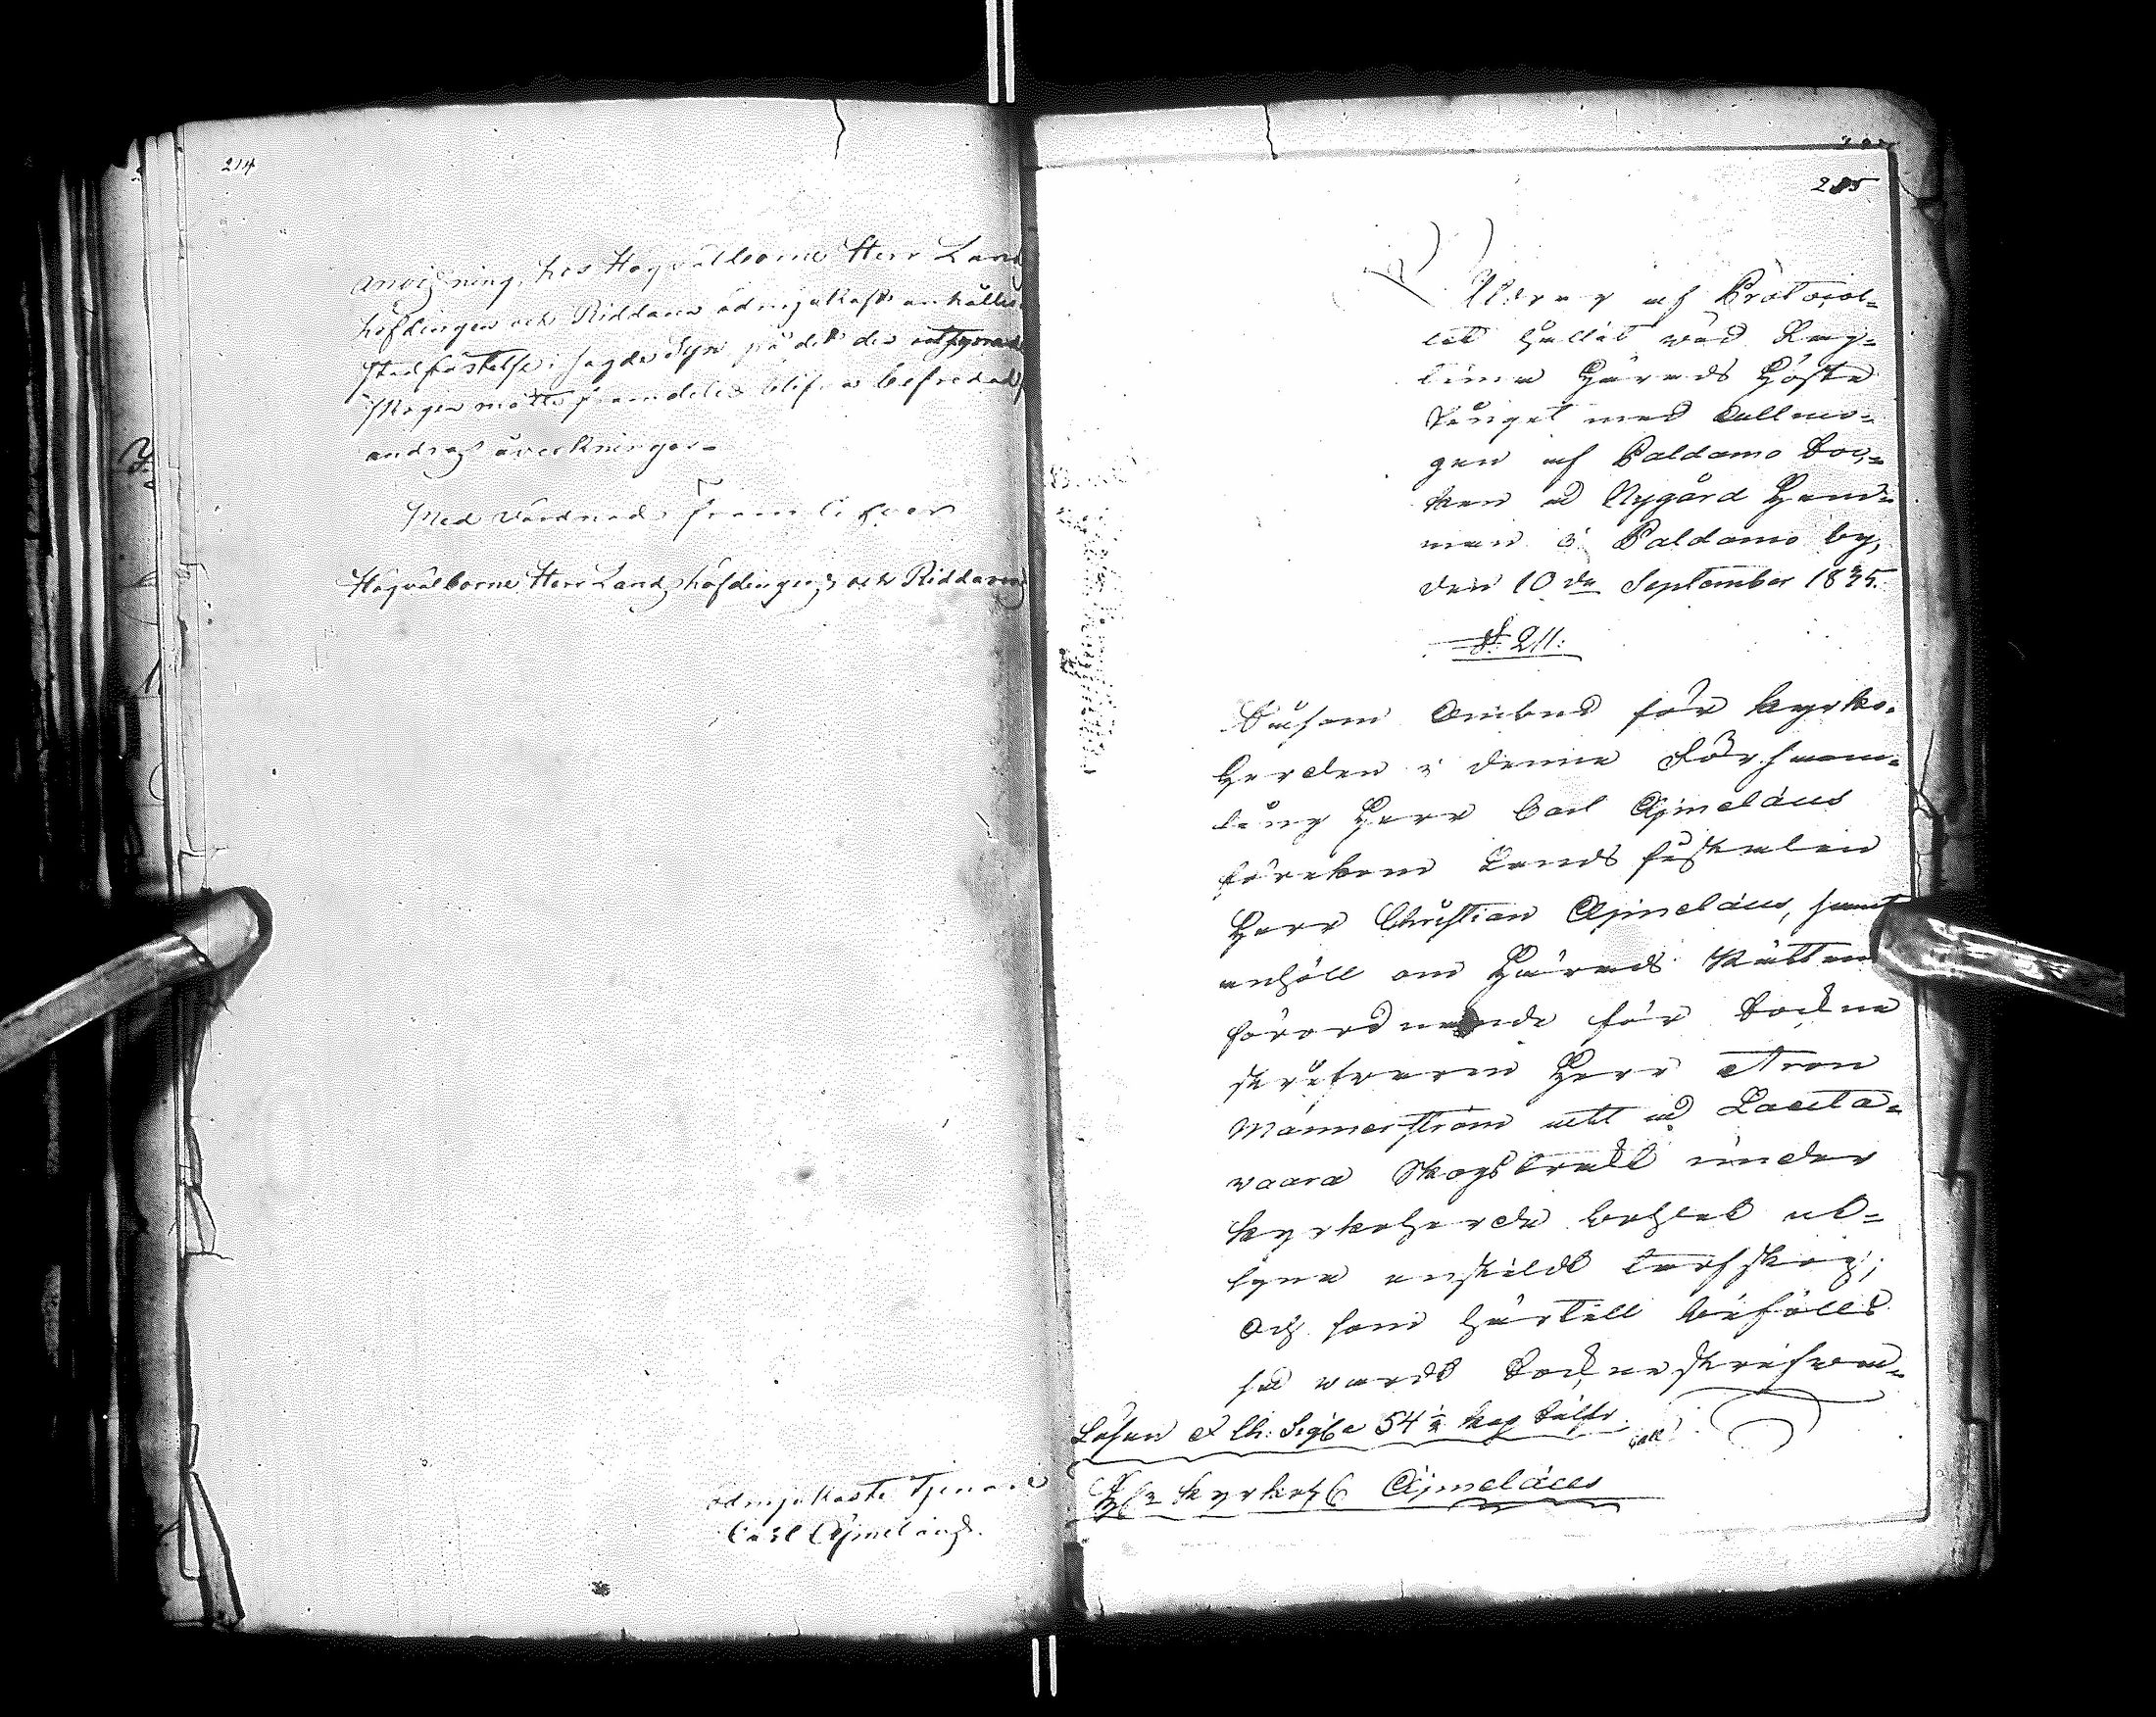 214
anvisning, hos Högvälborne Herr Lands
höfdingen och Riddaren ödmjukast anhålles
stadfästelse i sagde Syn på det den utsynade
skogen måtte framdeles blifva befredad
andras åverkningar.
Med vördnad framlefver
Högvälborne Herr Landshöfdingens och Riddarens
ödmjukaste tjenare
Carl Ajmelæus.
215
Utdrag af Protocol=
let hållit wid Lag=
tima Härads Höste
Tinget med allmo=
gen af Paldamo Soc=
ken å Nygård Hem=
man i Paldamo by,
den 10de September 1835.
§ 211.
Såsom Ombud för kyrko=
Herden i denna Församm=
ling Herr Carl Ajmelæus
förekom Lands fiskalen
Herr Christian Ajmelæus, samt
anhöll om Härads Rättens
förordnande för Sockne
skrifvaren Herr Aron
Mannerström att å Lauta=
vaara Skogstrakt under
kyrkoherde bohlet ut=
syna enskildt skog;
Och som härtill biföllls
så wardt Sockneskrifva=
Lösen 54 1/2 kop Silfr.
Ajmelæus